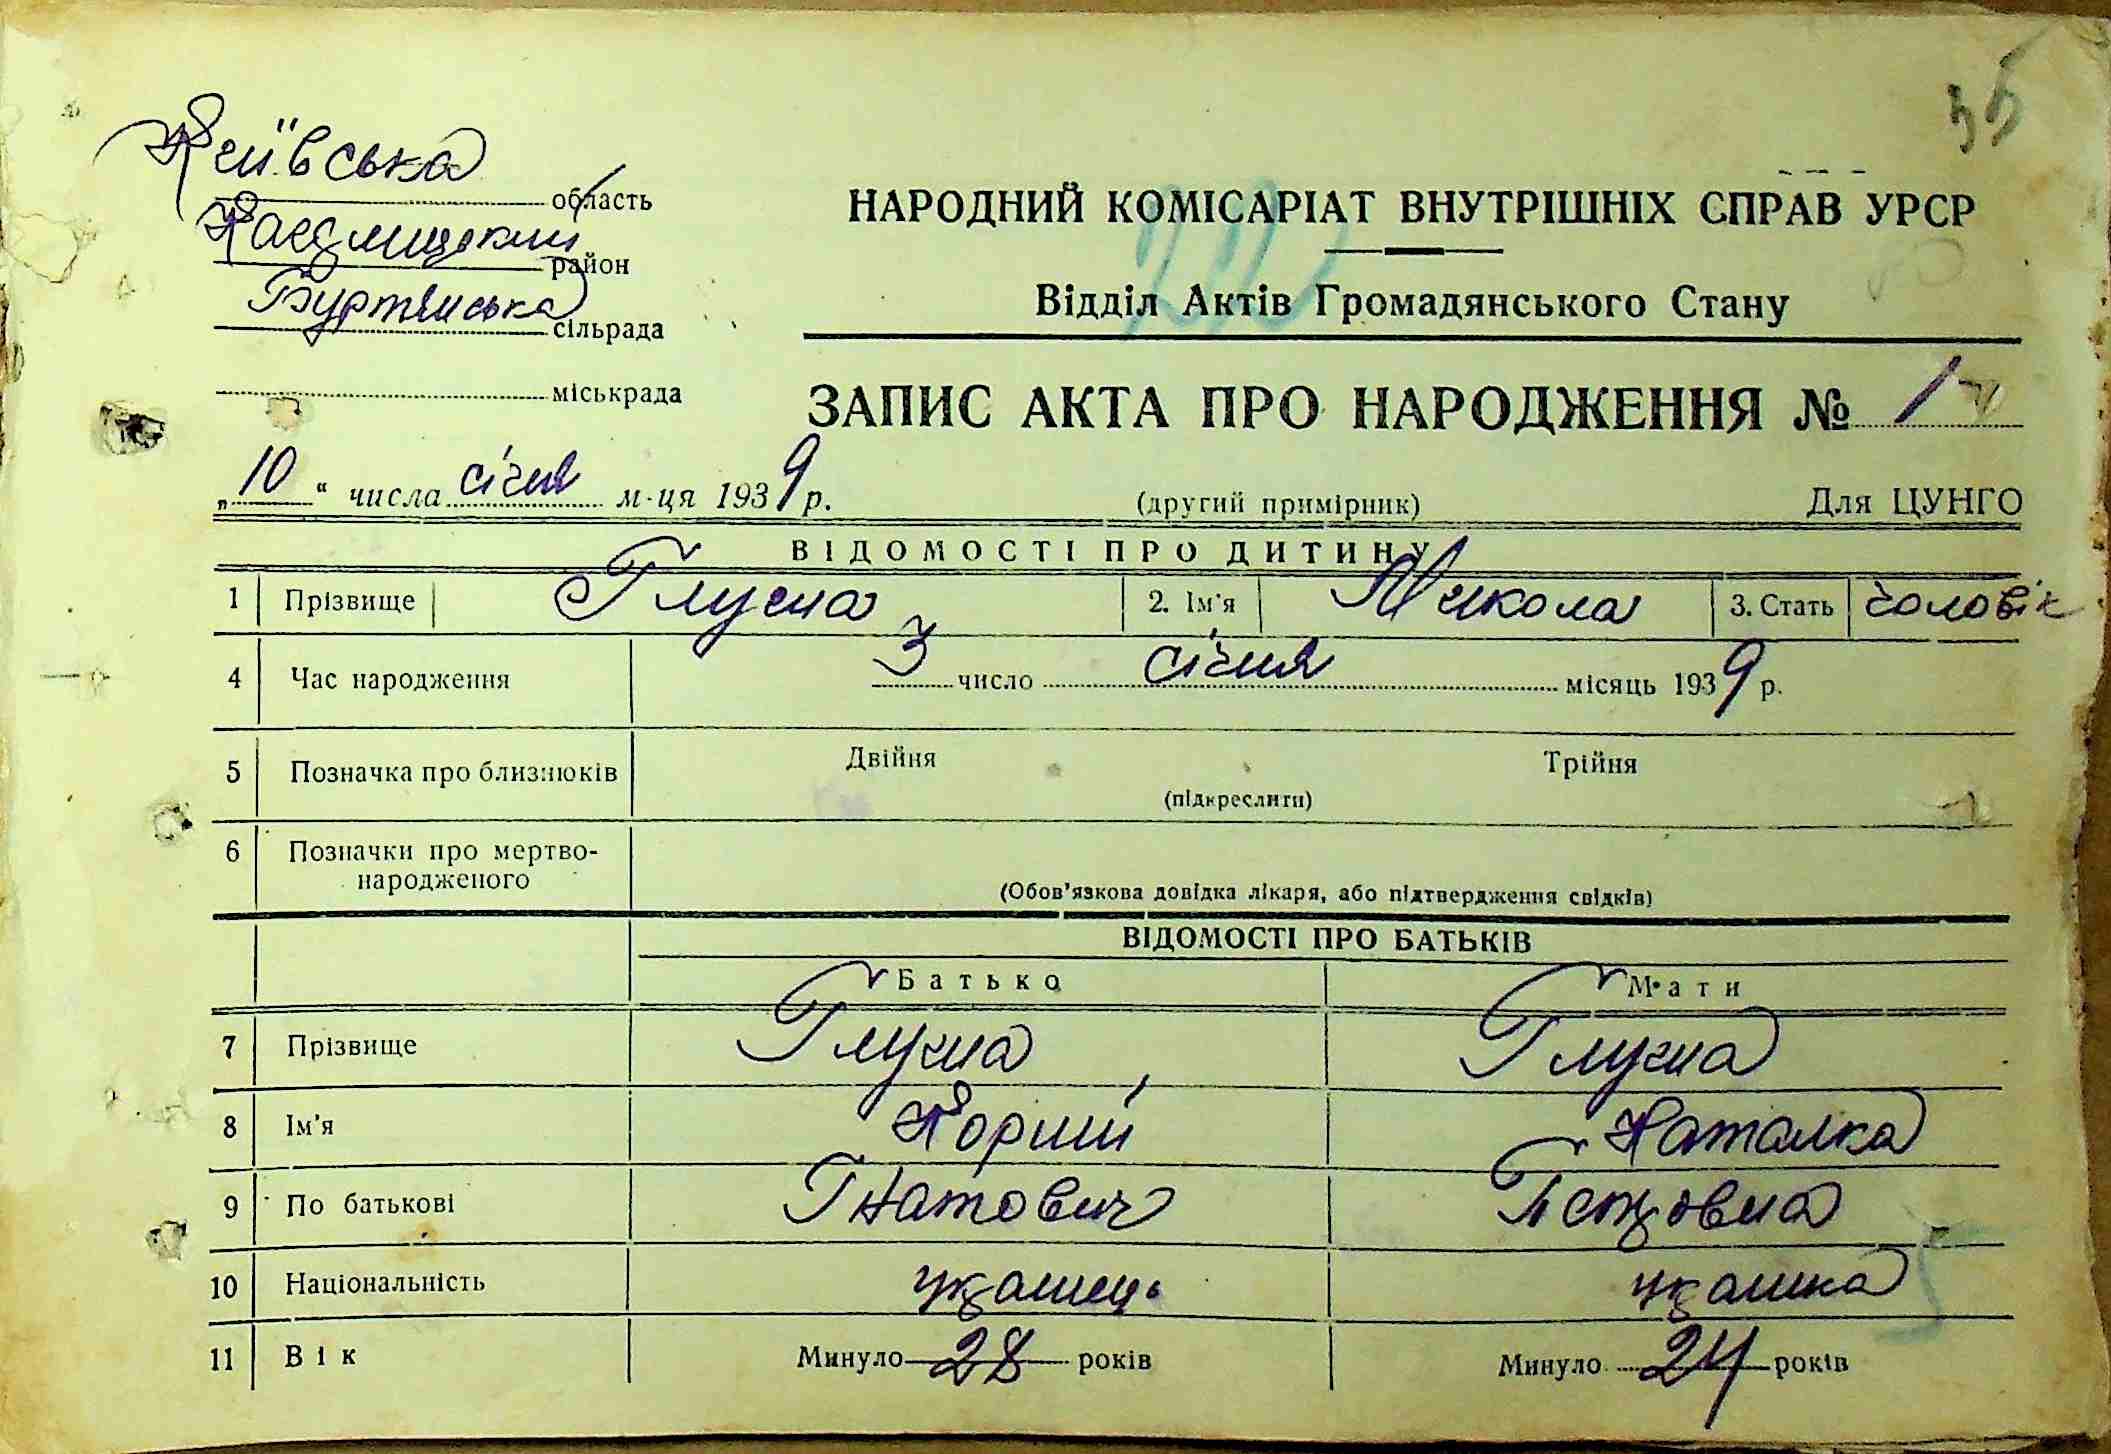 55
Київська область
Кагарлицький район
сільрада
міськрада
НАРОДНИЙ КОМІСАРІАТ ВНУТРІШНІХ СПРАВ УРСР
Відділ Актів Громадянського Стану
ЗАПИС АКТА ПРО НАРОДЖЕННЯ № 1
„10“ числа січня м-ця 1939 р. (другий примірник) Для ЦУНГО
ВІДОМОСТІ ПРО ДИТИНУ
1 Прізвище 2. Ім'я Микола 3. Стать чоловік
4 Час народження 3 число січня місяць 1939 р.
5 Позначка про близнюків Двійня Трійня
(підкреслити)
6 Позначки про мертво-
народженого
(Обов'язкова довідка лікаря, або підтвердження свідків)
ВІДОМОСТІ ПРО БАТЬКІВ
Батько Мати
7 Прізвище
8 Ім'я Корній Наталка
9 По батькові Гнатович Петровна
10 Національність
11 Вік Минуло 28 років Минуло 24 років